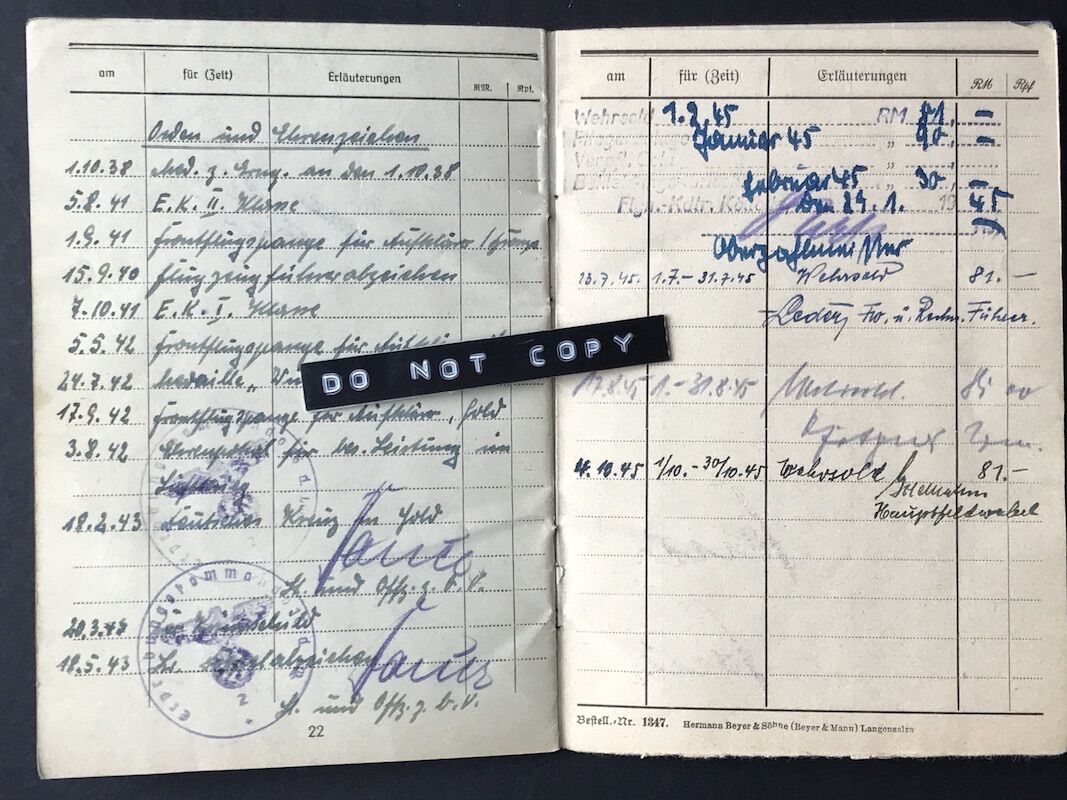 am für (Zeit) Erläuterungen RM. Rpf.
Orden und Ehrenzeichen
1.10.38 Med. z. Erg. an den 1.10.38
5.8.41 E.K. II. Klasse
1.9.41 Frontflugspange für Aufklärer
15.9.40 Flugzeugführerabzeichen
7.10.41 E.K. I. Klasse
5.5.42 Frontflugspange für
24.7.42 Medaille „
17.9.42 Frontflugspange für Aufklärer, Gold
3.8.42 Ehrenpokal für bes. Leistung im
Luftkrieg
18.2.43 Deutsches Kreuz in Gold
und Offz. z. b. V.
20.3.
18.5.43
und Offz. z. b. V.
22
DO NOT COPY
am für (Zeit) Erläuterungen RM Rpf
Wehrsold 1.2.45 RM 81,–
Januar 45 „ 90,–
„
Februar 45 „ 30,–
den 29.1. 1945
Oberzahlmeister
13.7.45. 1.7.–31.7.45 Wehrsold 81.–
Fw. u. Rechn. Führer.
17.8.45 1.–31.8.45 Wehrsold.
4.10.45 1/10.–30/10.45 Wehrsold 81.–
Hauptfeldwebel
Bestell.-Nr. 1347. Hermann Beyer & Söhne (Beyer & Mann) Langensalza